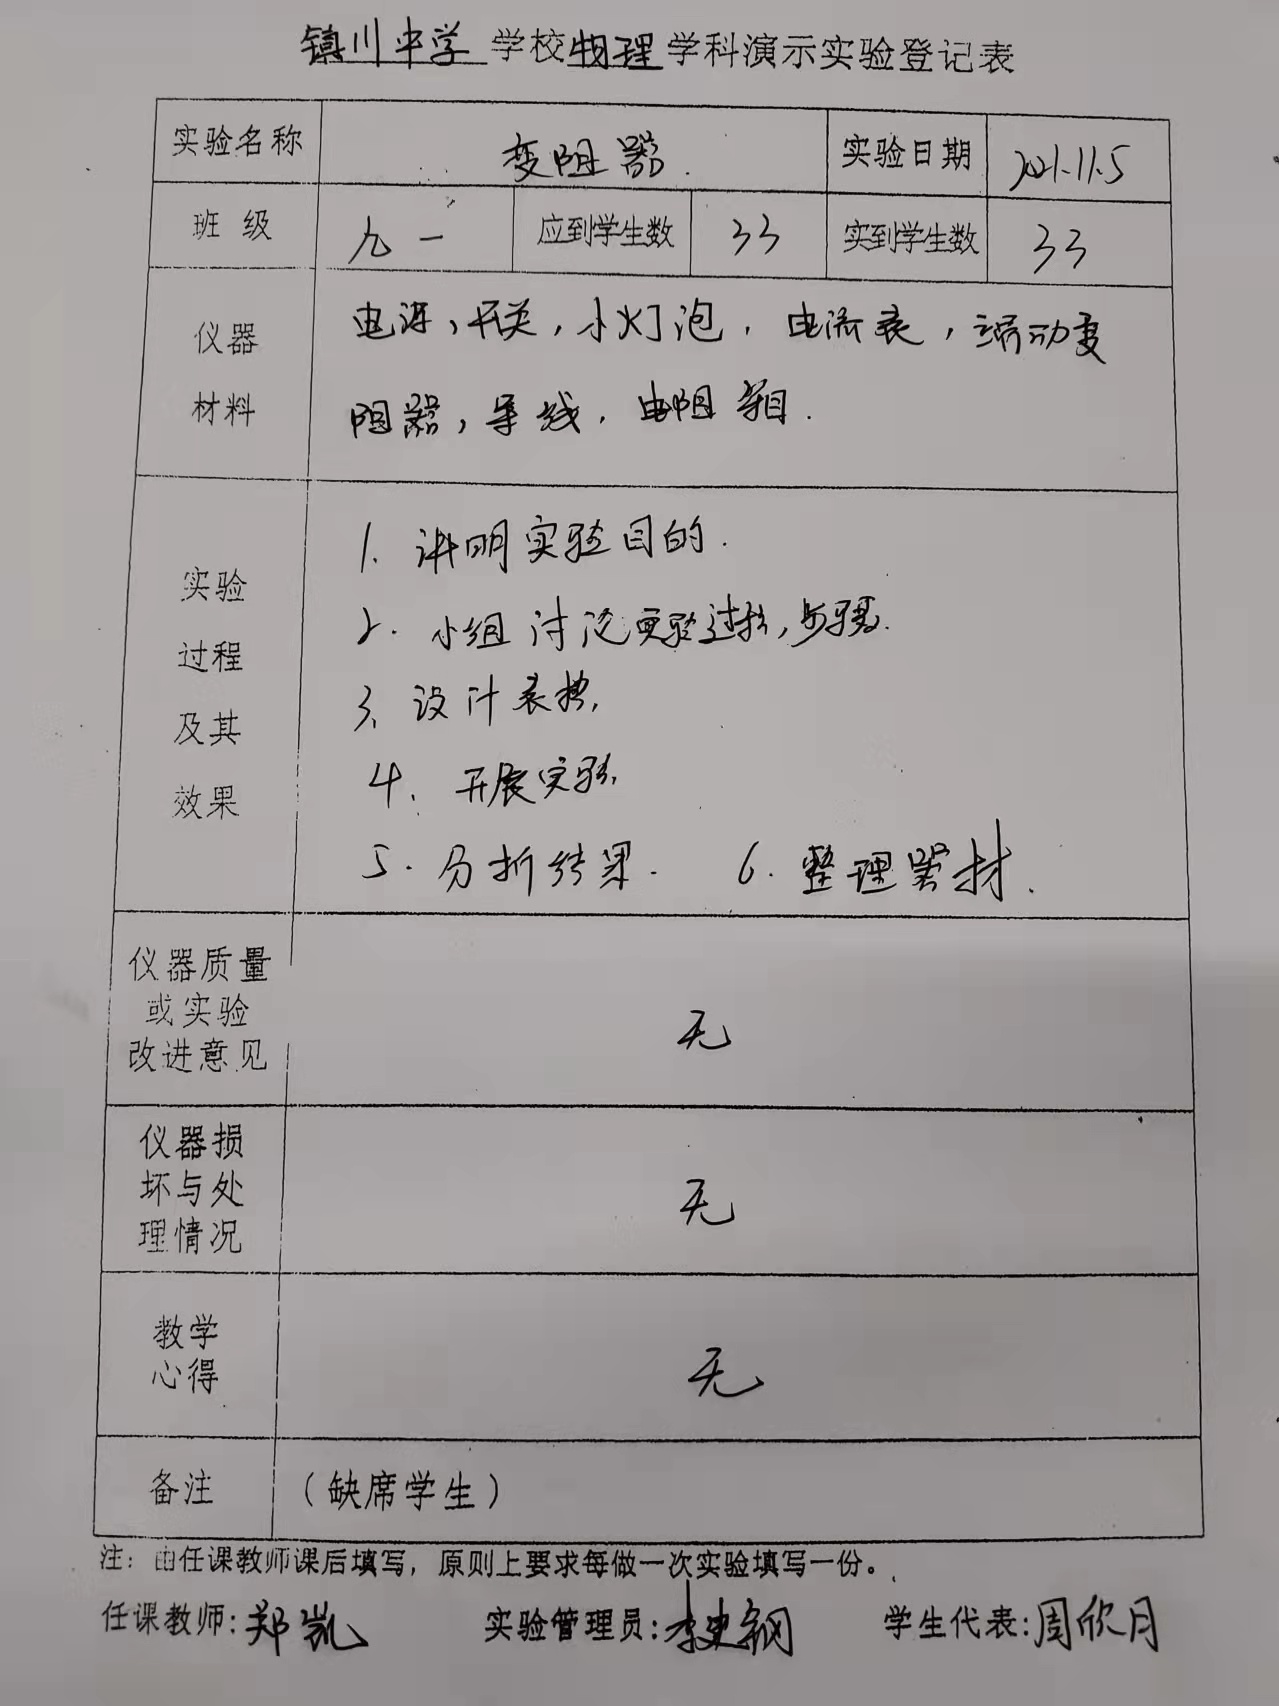 镇川中学 学校物理学科演示实验登记表
实验名称 变阻器. 实验日期 2021.11.5
班 级 九一 应到学生数 33 实到学生数 33
仪器
材料
电源,开关,小灯泡,电流表,滑动变
阻器,导线,电阻箱.
实验
过程
及其
效果
1. 讲明实验目的.
2. 小组讨论实验过程,步骤.
3. 设计表格,
4. 开展实验,
5. 分析结果. 6. 整理器材.
仪器质量
或实验
改进意见
无
仪器损
坏与处
理情况
无
教学
心得
无
备注 (缺席学生)
注: 由任课教师课后填写,原则上要求每做一次实验填写一份。
任课教师:郑凯 实验管理员:李史钢 学生代表:周欣月